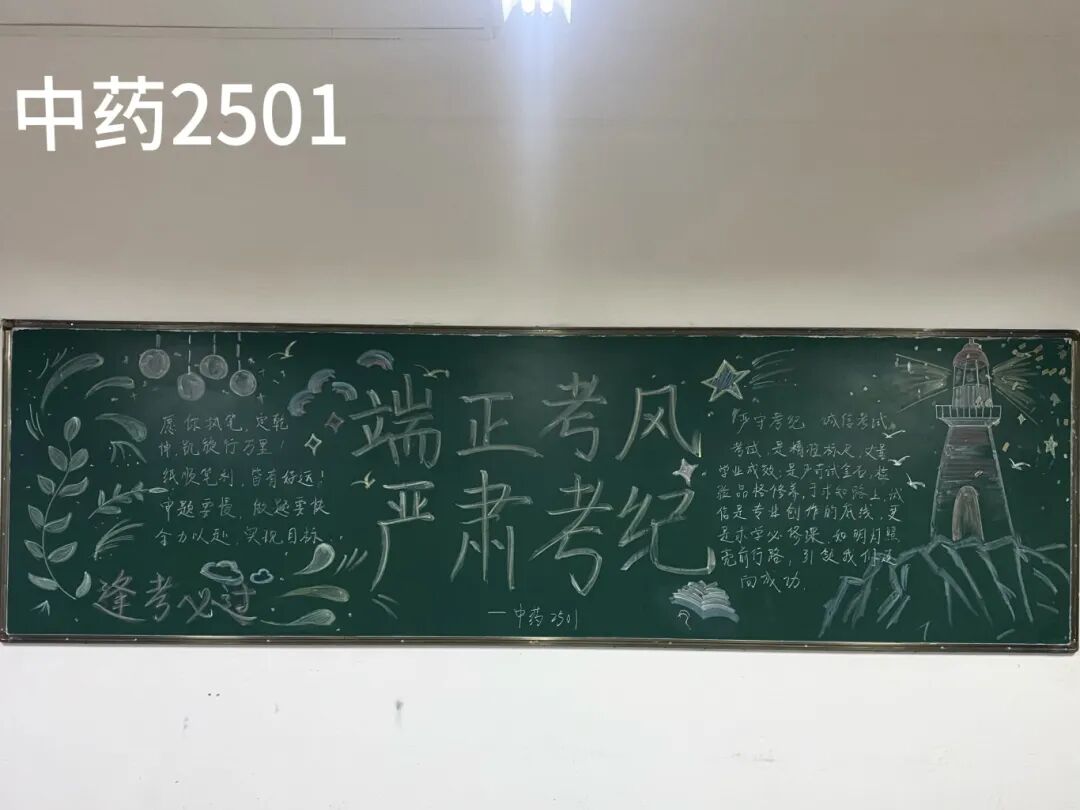 中药2501
愿你执笔,定乾
坤,凯旋行万里!
纸顺笔利,皆有好运!
审题要慢,做题要快
全力以赴,实现目标...
逢考必过
端正考风
严肃考纪
—中药2501
严守考纪 诚信考试
考试,是精准标尺,丈量
学业成效;是严苛试金石,检
验品格修养。于求知路上,诚
信是专业创作的底线,更
是求学必修课。如明灯照
亮前行路,引领我们迈
向成功.